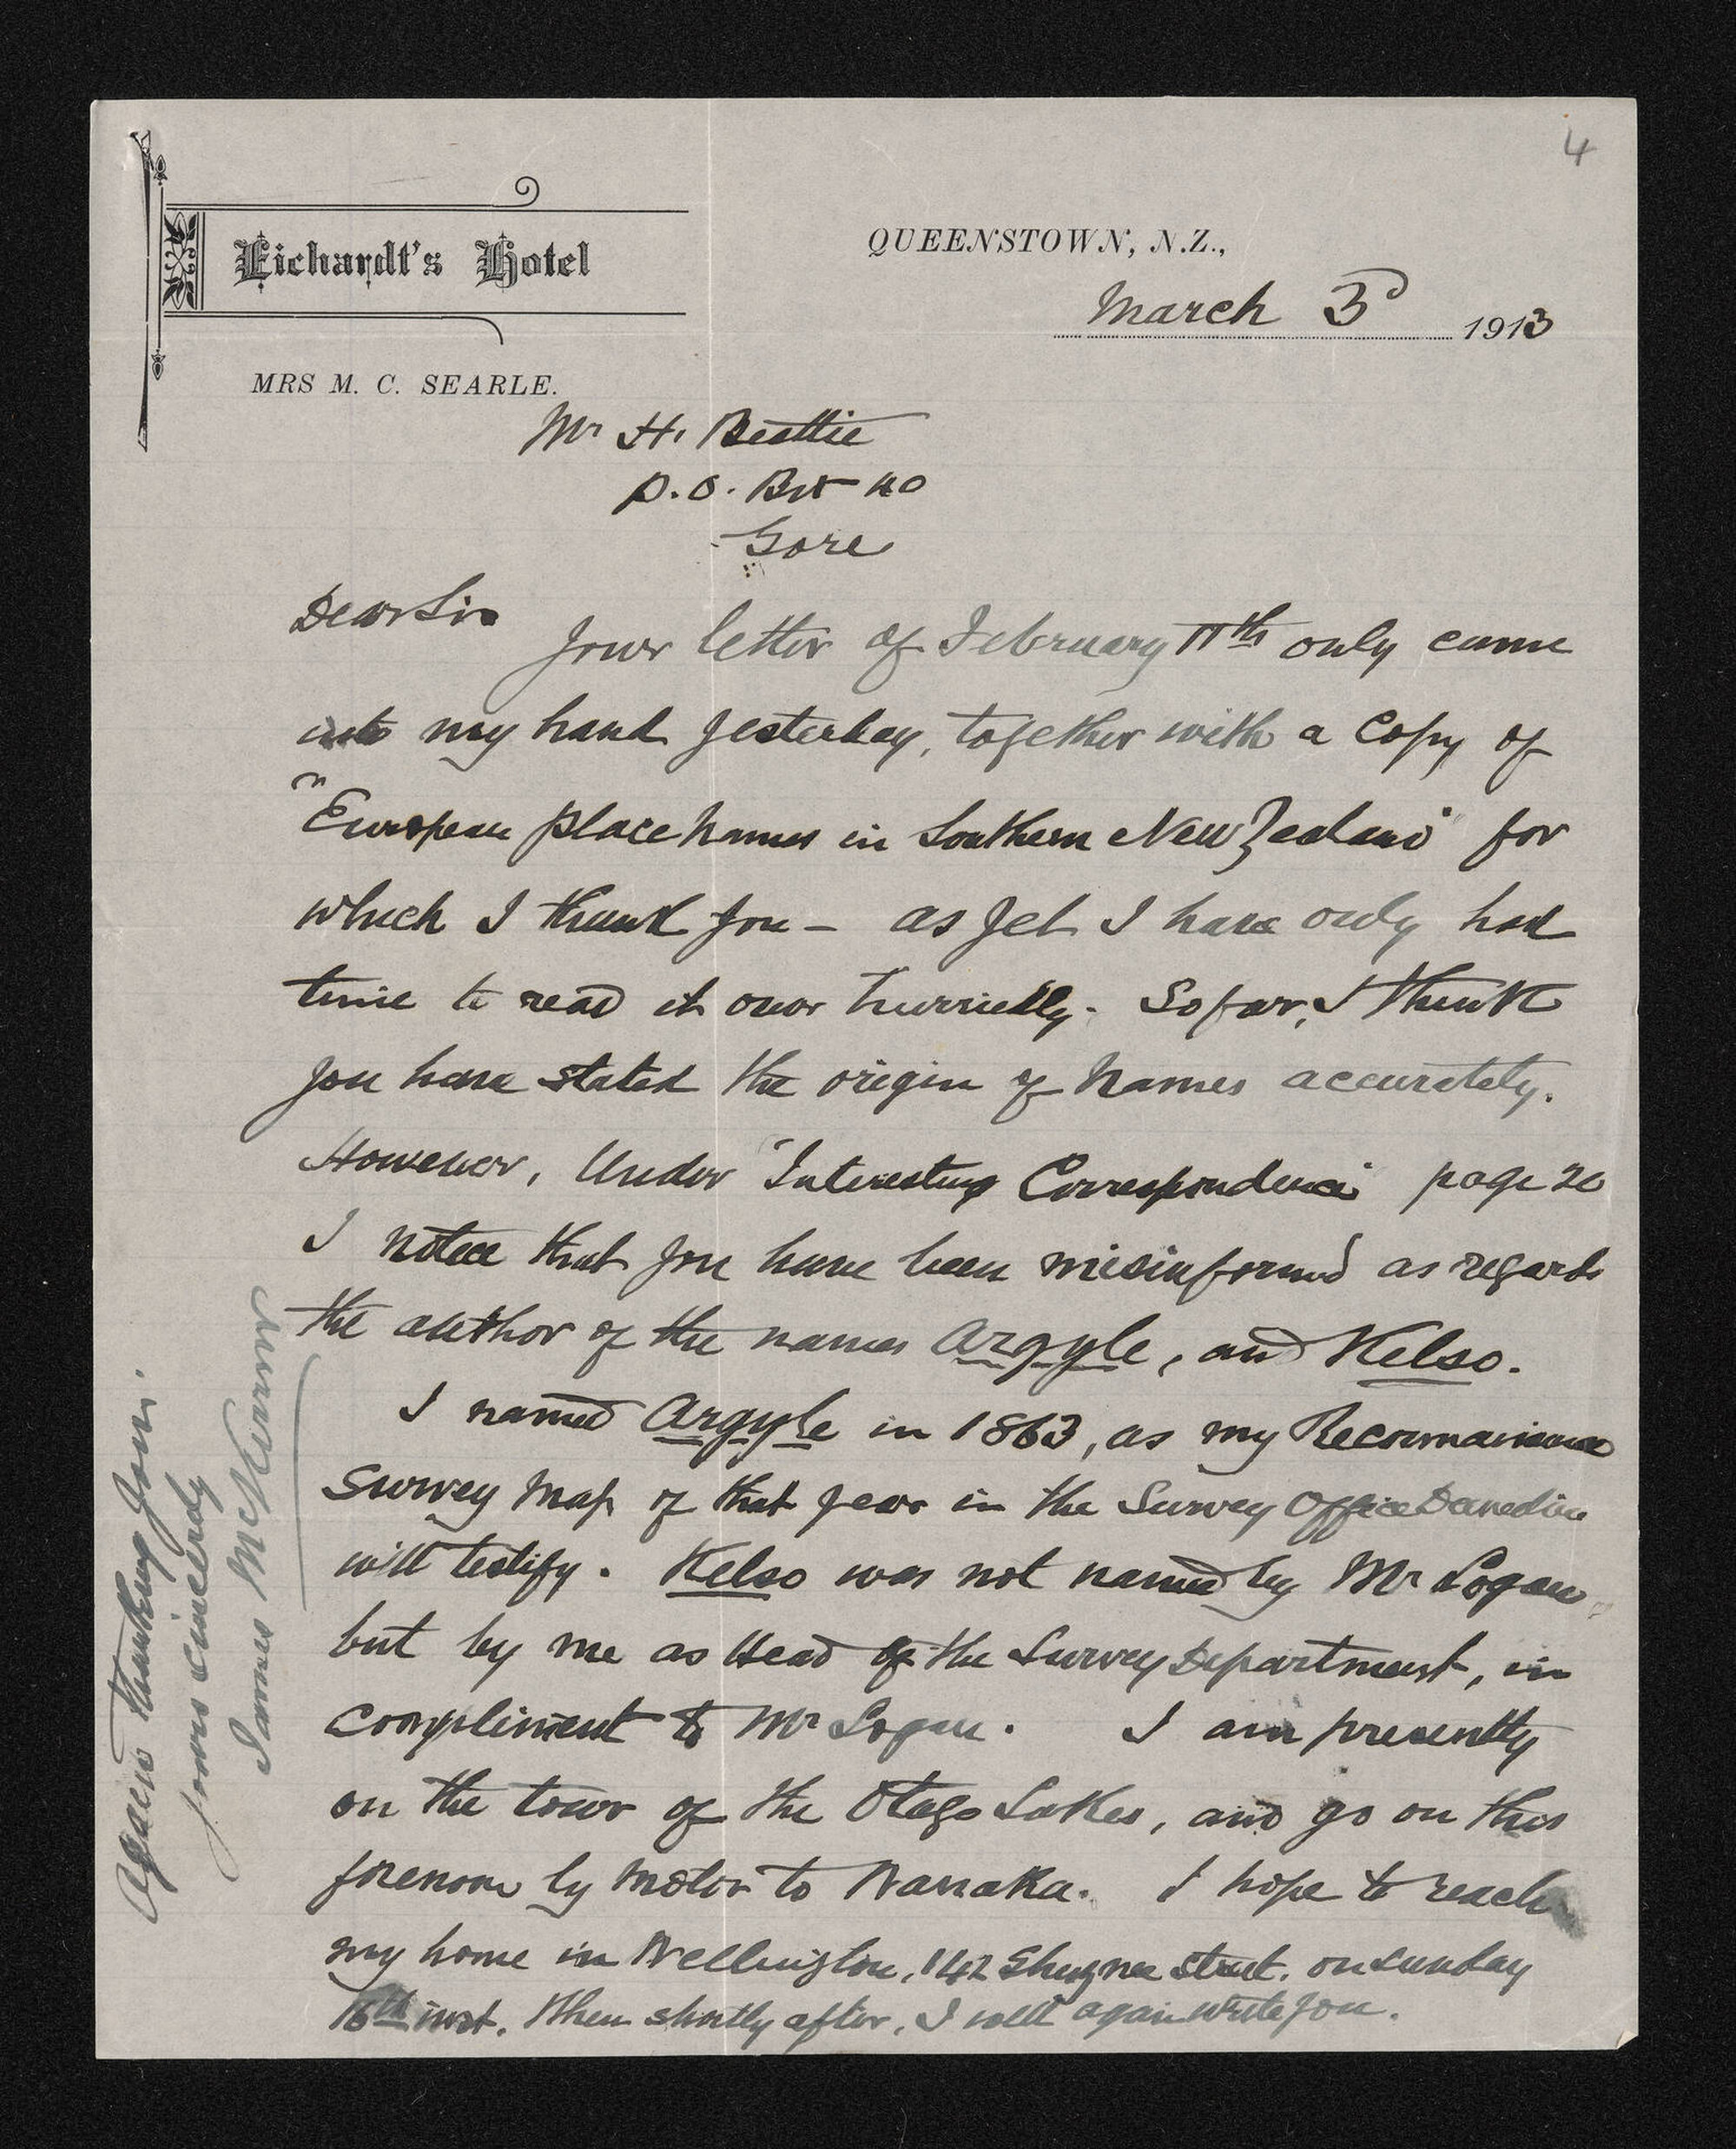 4
Eichardt's Hotel
QUEENSTOWN, N.Z.,
March 3d 1913
MRS M. C. SEARLE.
Mr H. Beattie
P.O. Box 40
Gore
Dear Sir
Your letter of February 11th only came
into my hand yesterday, together with a copy of
"European place names in Southern New Zealand" for
which I thank you – as yet I have only had
time to read it over hurriedly. So far, I think
you have stated the origin of names accurately.
However, Under "Interesting Correspondence" page 20
I notice that you have been misinformed as regards
the author of the names Argyle, and Kelso.
I named Argyle in 1863, as my Reconnaissance
Survey Map of that year in the Survey Office Dunedin
will testify. Kelso was not named by Mr Logan,
but by me as Head of the Survey Department, in
compliment to Mr Logan. I am presently
on the tour of the Otago Lakes, and go on this
forenoon by Motor to Wanaka. I hope to reach
my home in Wellington, 142 street. on Sunday
16th inst. When shortly after, I will again write you.
Again thanking you.
yours sincerely
James McKerrow